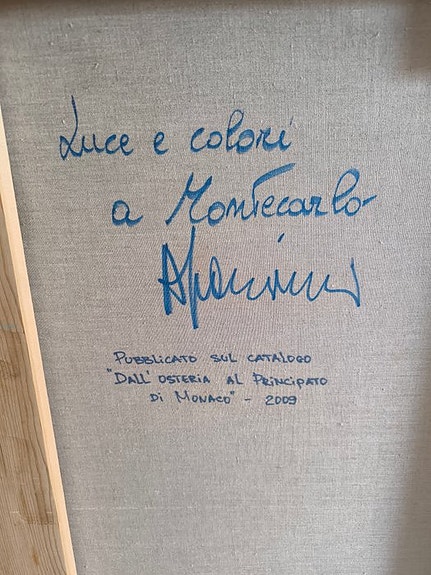 Luce e colori
a Montecarlo
PUBBLICATO SUL CATALOGO
"DALL'OSTERIA AL PRINCIPATO
DI MONACO" - 2009